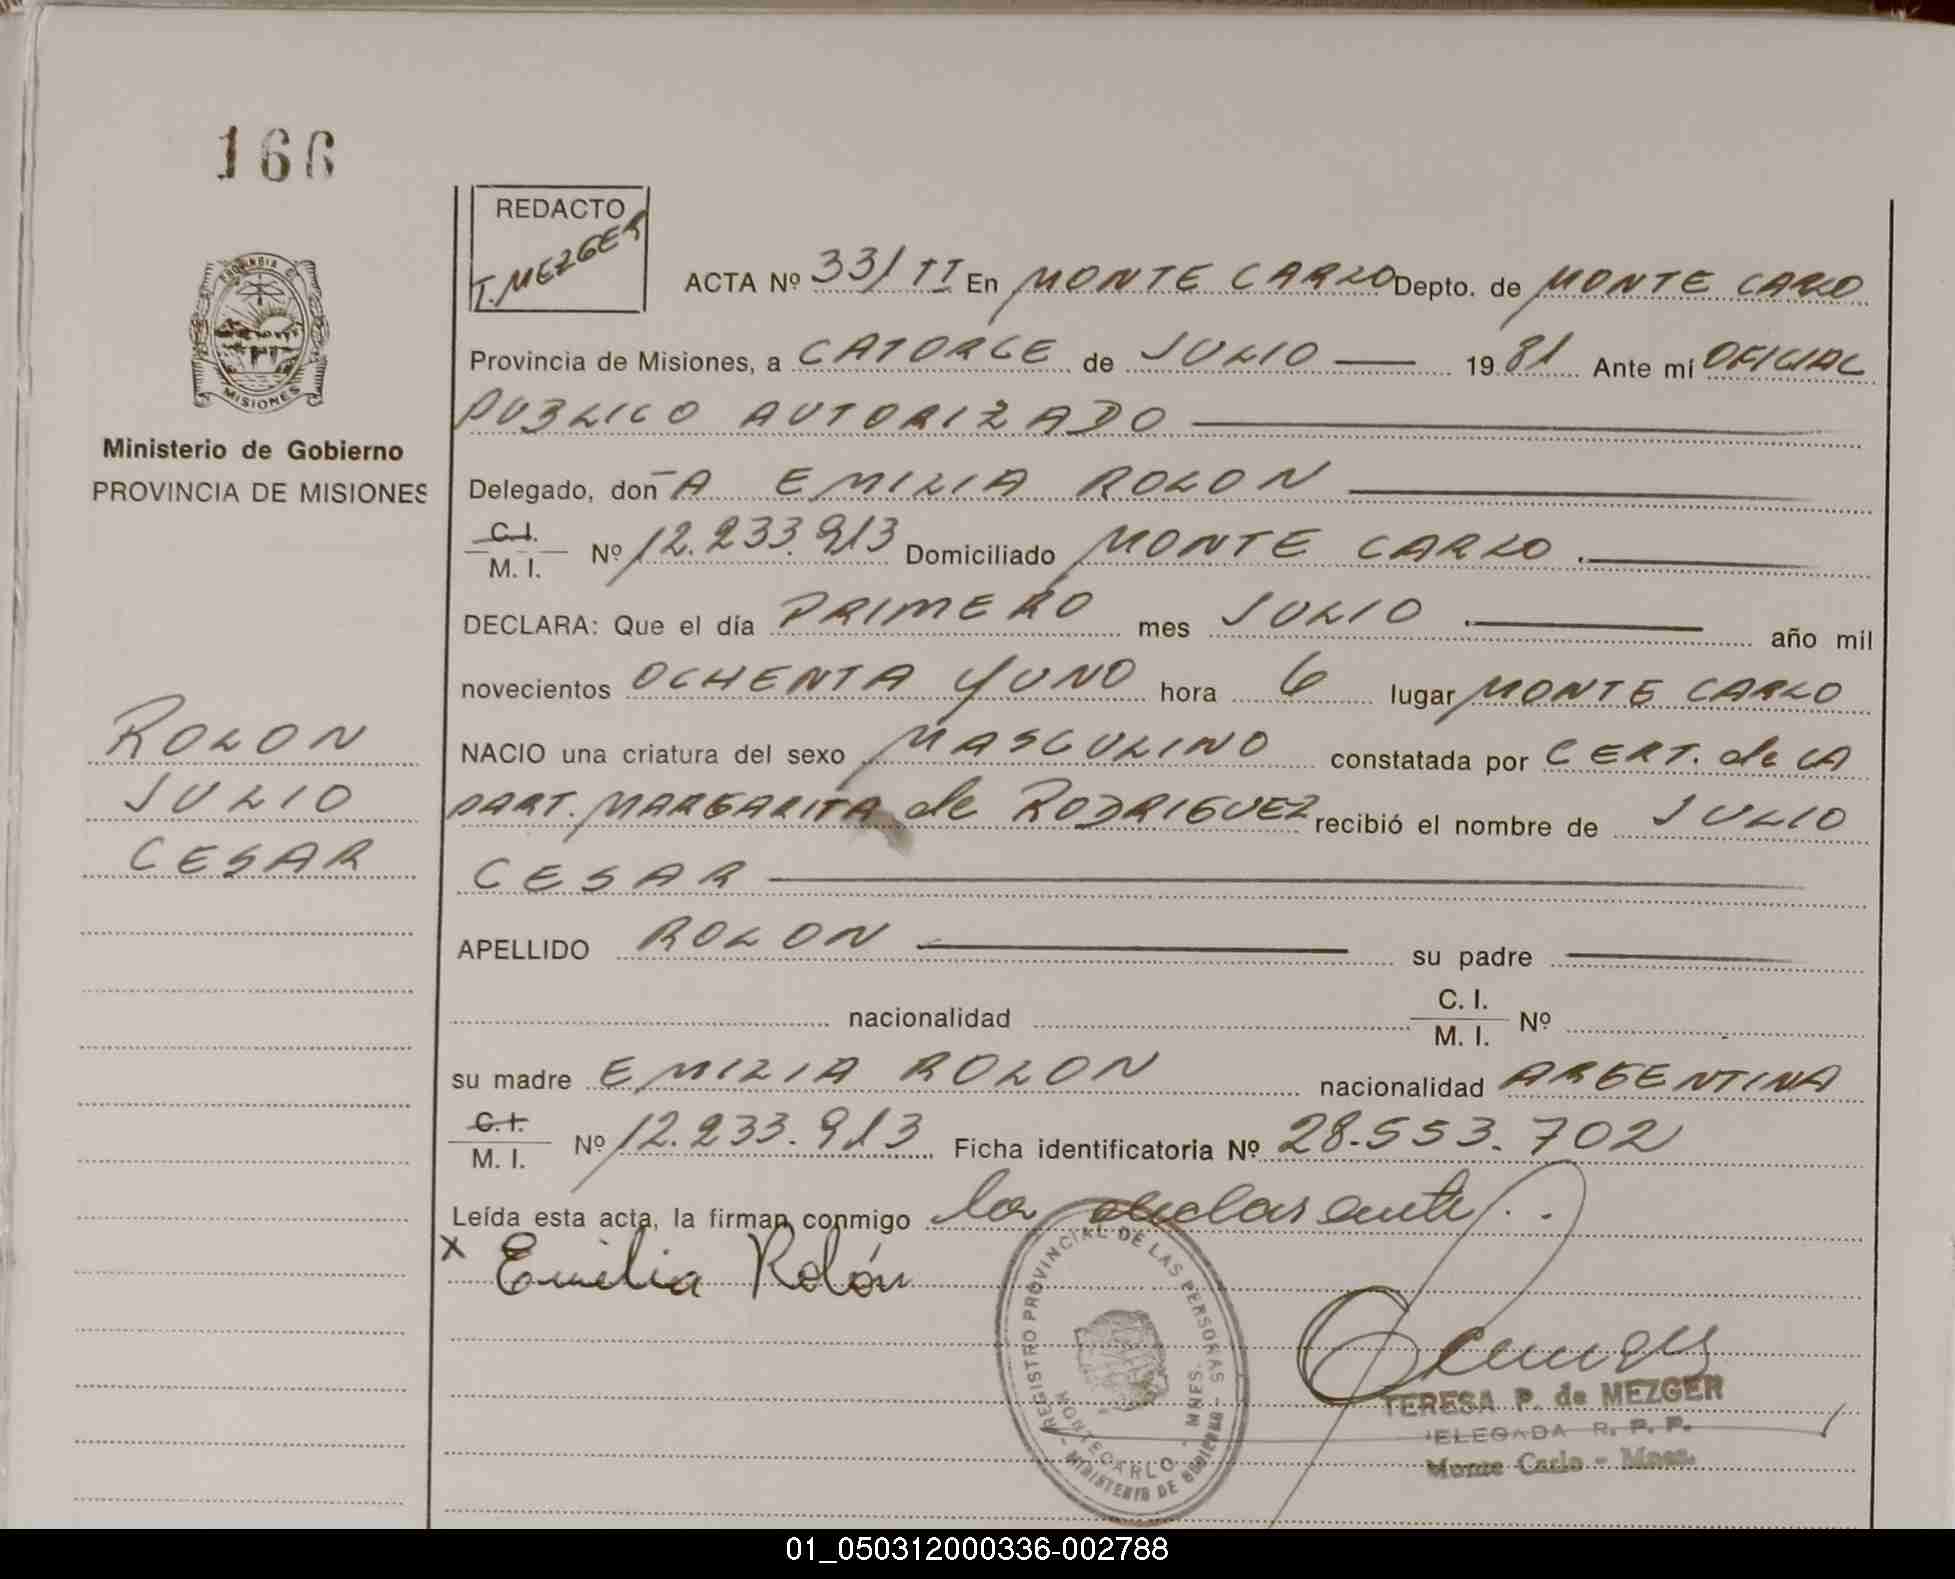 166
REDACTO
T. MEZGER
ACTA Nº 331 II En MONTE CARLO Depto. de MONTE CARLO
PROVINCIA
MISIONES
Provincia de Misiones, a CATORCE de JULIO 1981 Ante mí OFICIAL
PUBLICO AUTORIZADO
Ministerio de Gobierno
PROVINCIA DE MISIONES
Delegado, don̄A EMILIA ROLON
C.I.
M. I. Nº 12.233.913 Domiciliado MONTE CARLO.
DECLARA: Que el día PRIMERO mes JULIO. año mil
novecientos OCHENTA Y UNO hora 6 lugar MONTE CARLO
ROLON
JULIO
CESAR
NACIO una criatura del sexo MASCULINO constatada por CERT. de LA
PART. MARGARITA de RODRIGUEZ recibió el nombre de JULIO
CESAR
APELLIDO ROLON su padre
nacionalidad C. I.
M. I. Nº
su madre EMILIA ROLON nacionalidad ARGENTINA
C.I.
M. I. Nº 12.233.913 Ficha identificatoria Nº 28.553.702
Leída esta acta, la firman conmigo la declarante
x Emilia Rolón
REGISTRO PROVINCIAL DE LAS PERSONAS
MONTECARLO - MNES.
- MINISTERIO DE GOBIERNO -
TERESA P. de MEZGER
DELEGADA R. P. P.
Monte Carlo - Mnes.
01_050312000336-002788